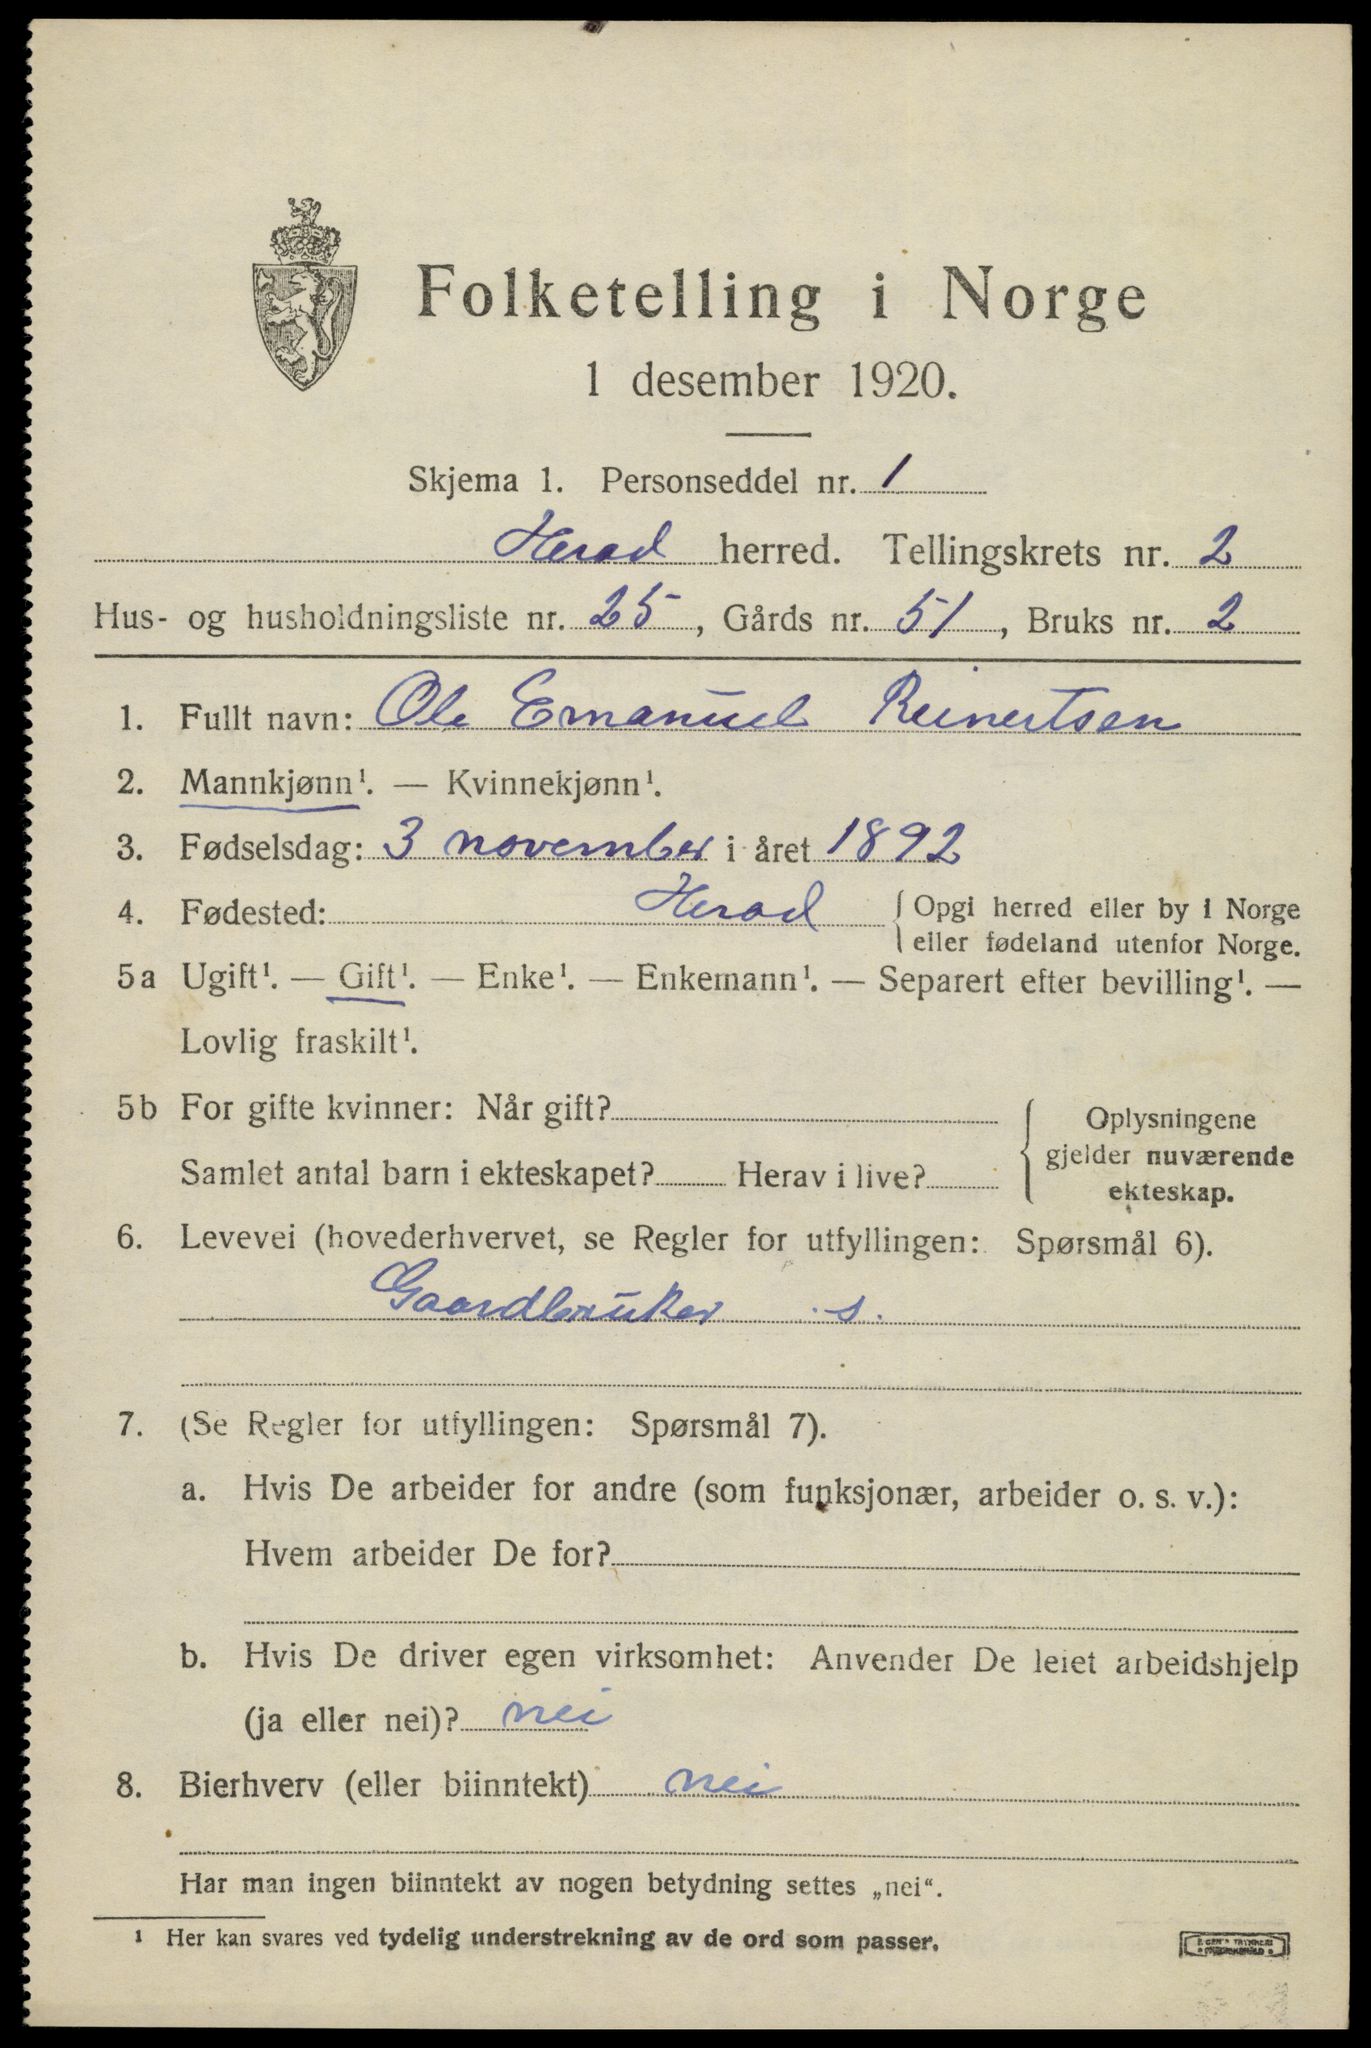 Folketelling i Norge
1 desember 1920.
Skjema 1. Personseddel nr. 1
Herad herred. Tellingskrets nr. 2
Hus- og husholdningsliste nr. 25, Gårds nr. 51, Bruks nr. 2
1. Fullt navn: Ole Emanuel Reinertsen
2. Mannkjønn¹. — Kvinnekjønn¹.
3. Fødselsdag: 3 november i året 1892
4. Fødested: Herad { Opgi herred eller by i Norge
eller fødeland utenfor Norge.
5a Ugift¹. — Gift¹. — Enke¹. — Enkemann¹. — Separert efter bevilling¹. —
Lovlig fraskilt¹.
5b For gifte kvinner: Når gift?
Samlet antal barn i ekteskapet? Herav i live?
Oplysningene
gjelder nuværende
ekteskap.
6. Levevei (hovederhvervet, se Regler for utfyllingen: Spørsmål 6).
Gaardbruker s.
7. (Se Regler for utfyllingen: Spørsmål 7).
a. Hvis De arbeider for andre (som funksjonær, arbeider o. s. v.):
Hvem arbeider De for?
b. Hvis De driver egen virksomhet: Anvender De leiet arbeidshjelp
(ja eller nei)? nei
8. Bierhverv (eller biinntekt) nei
Har man ingen biinntekt av nogen betydning settes „nei“.
¹ Her kan svares ved tydelig understrekning av de ord som passer.